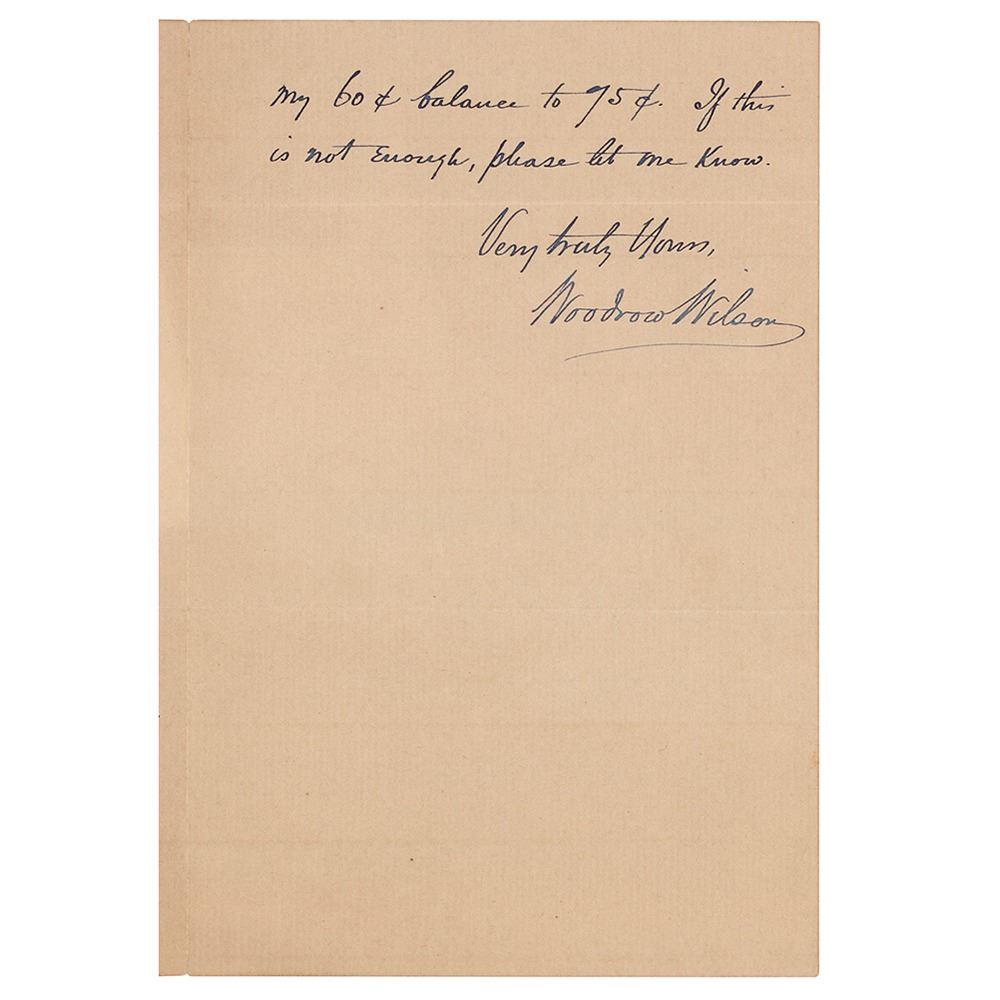 my 60¢ balance to 75¢. If this
is not enough, please let me know.
Very truly Yours,
Woodrow Wilson